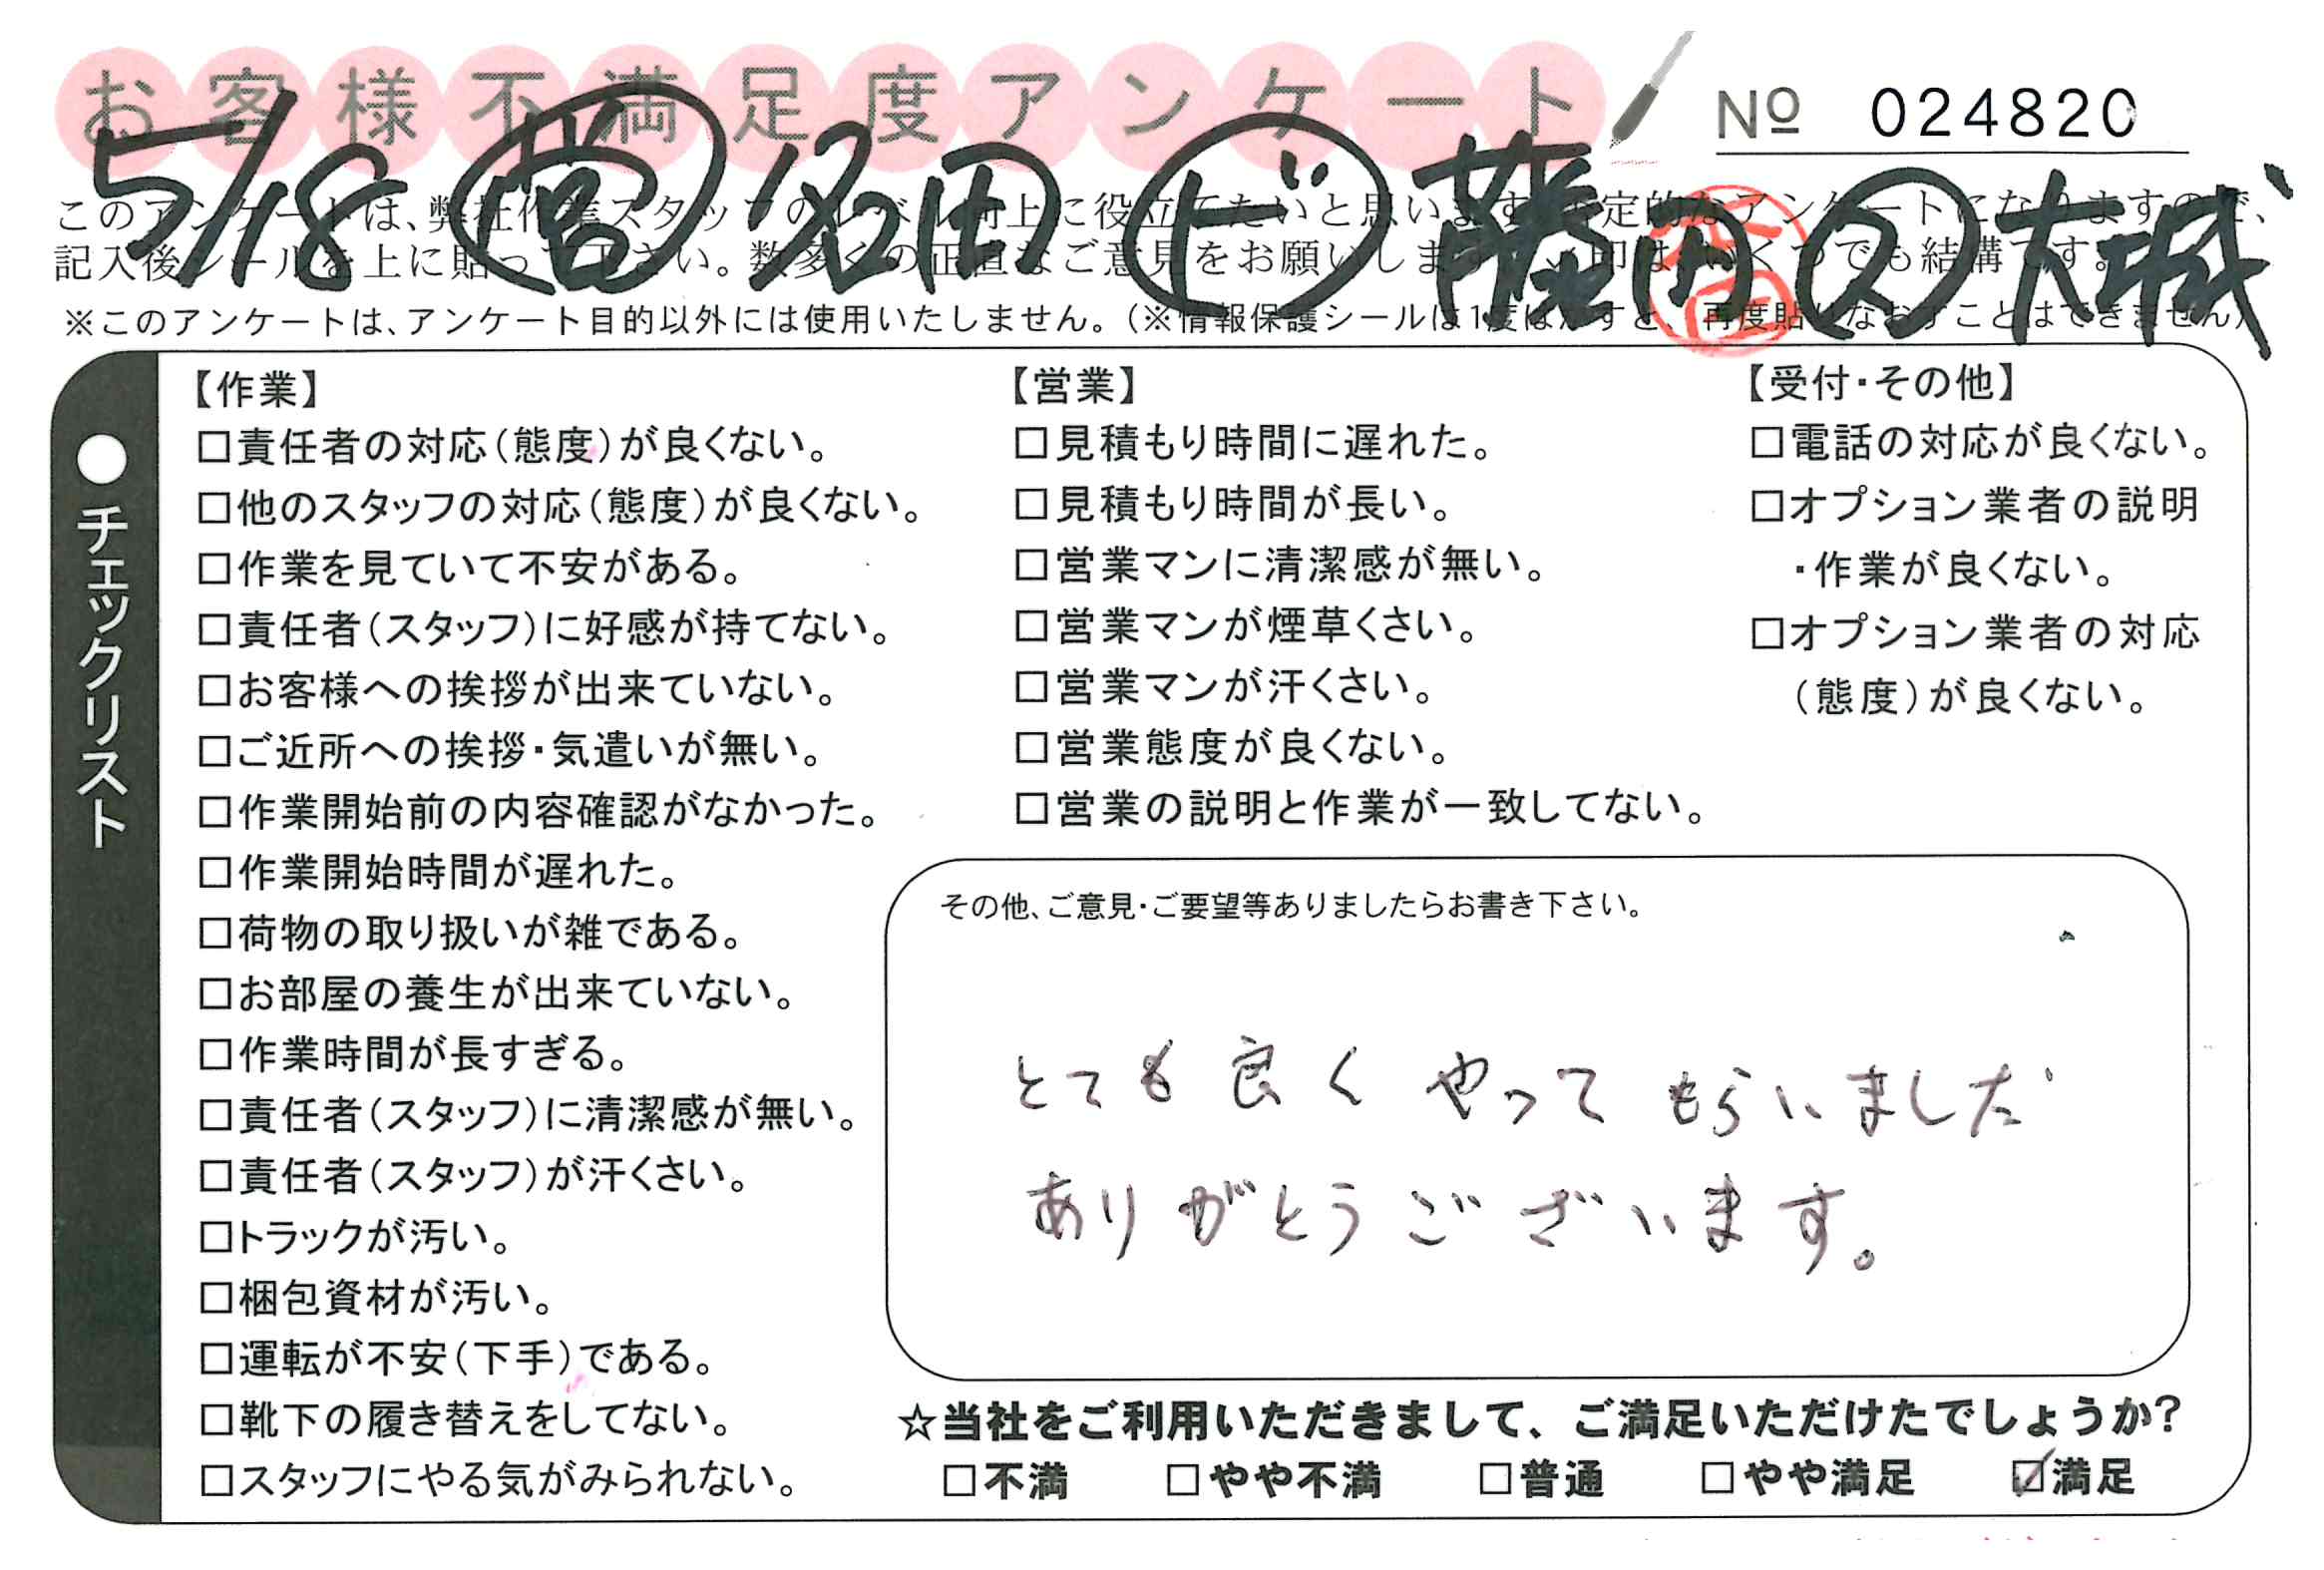 お客様不満足度アンケート
№ 024820
5/18 営 沼田 ド 藤田 ス 大城
このアンケートは、弊社作業スタッフのレベル向上に役立てたいと思います。否定的なアンケートになりますので、
記入後シールを上に貼って下さい。数多くの正直なご意見をお願いします。✓印はいくつでも結構です。
※このアンケートは、アンケート目的以外には使用いたしません。(※情報保護シールは1度はがすと、再度貼りなおすことはできません)
●チェックリスト
【作業】
□責任者の対応(態度)が良くない。
□他のスタッフの対応(態度)が良くない。
□作業を見ていて不安がある。
□責任者(スタッフ)に好感が持てない。
□お客様への挨拶が出来ていない。
□ご近所への挨拶・気遣いが無い。
□作業開始前の内容確認がなかった。
□作業開始時間が遅れた。
□荷物の取り扱いが雑である。
□お部屋の養生が出来ていない。
□作業時間が長すぎる。
□責任者(スタッフ)に清潔感が無い。
□責任者(スタッフ)が汗くさい。
□トラックが汚い。
□梱包資材が汚い。
□運転が不安(下手)である。
□靴下の履き替えをしてない。
□スタッフにやる気がみられない。
【営業】
□見積もり時間に遅れた。
□見積もり時間が長い。
□営業マンに清潔感が無い。
□営業マンが煙草くさい。
□営業マンが汗くさい。
□営業態度が良くない。
□営業の説明と作業が一致してない。
【受付・その他】
□電話の対応が良くない。
□オプション業者の説明
・作業が良くない。
□オプション業者の対応
(態度)が良くない。
その他、ご意見・ご要望等ありましたらお書き下さい。
とても良くやってもらいました
ありがとうございます。
☆当社をご利用いただきまして、ご満足いただけたでしょうか?
□不満 □やや不満 □普通 □やや満足 ☑満足